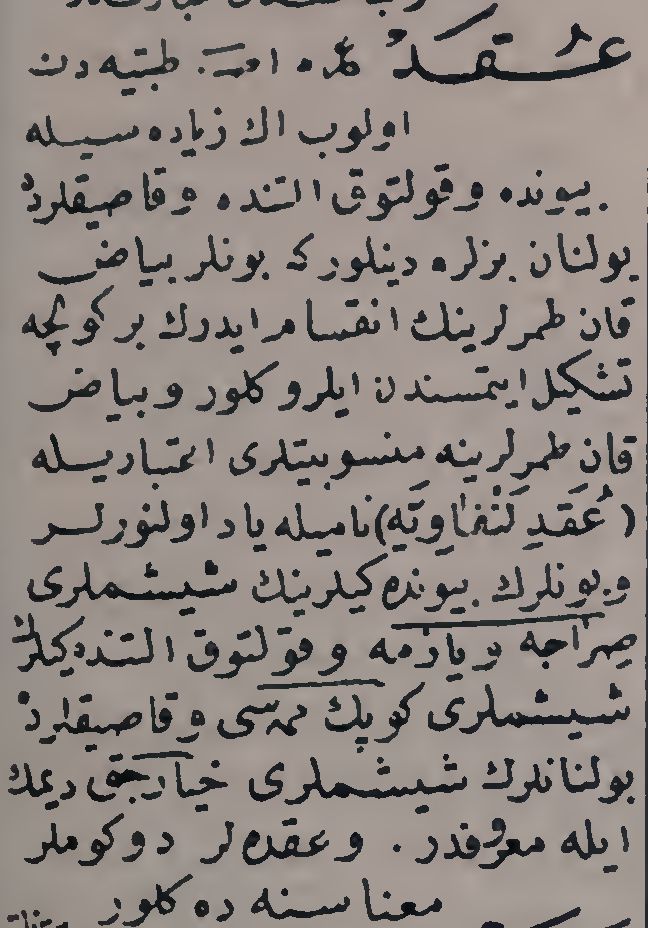 عُقَد كلمه اصطلاحات طبيه دن
اولوب اك زياده سيله
بيونده وقولتوق التنده وقاصيقلرده
بولنان بزلره دينلور كه بونلر بياض
قان طمرلرينك انقسام ايدرك بر كوچه
تشكيل ايتمسندن ايلرو كلور وبياض
قان طمرلرينه منسوبيتلرى اعتباريله
(عُقَدِ لَنْفاوِيَّه) ناميله ياد اولنورلر
وبونلرك بيونده كيلرينك شيشملرى
صراجه ويارمه وقولتوق التنده كيلرك
شيشملرى كوپك ممه سى وقاصيقلرده
بولنانلرك شيشملرى خيارجق ديمك
ايله معروفدر . وعقده لر دوكوملر
معناسنه ده كلور